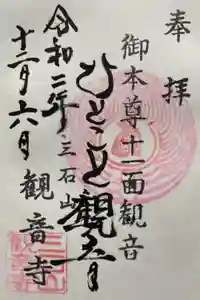 奉拝
御本尊十一面観音
ひとこと観音
三石山
観音寺
令和二年
十二月六日